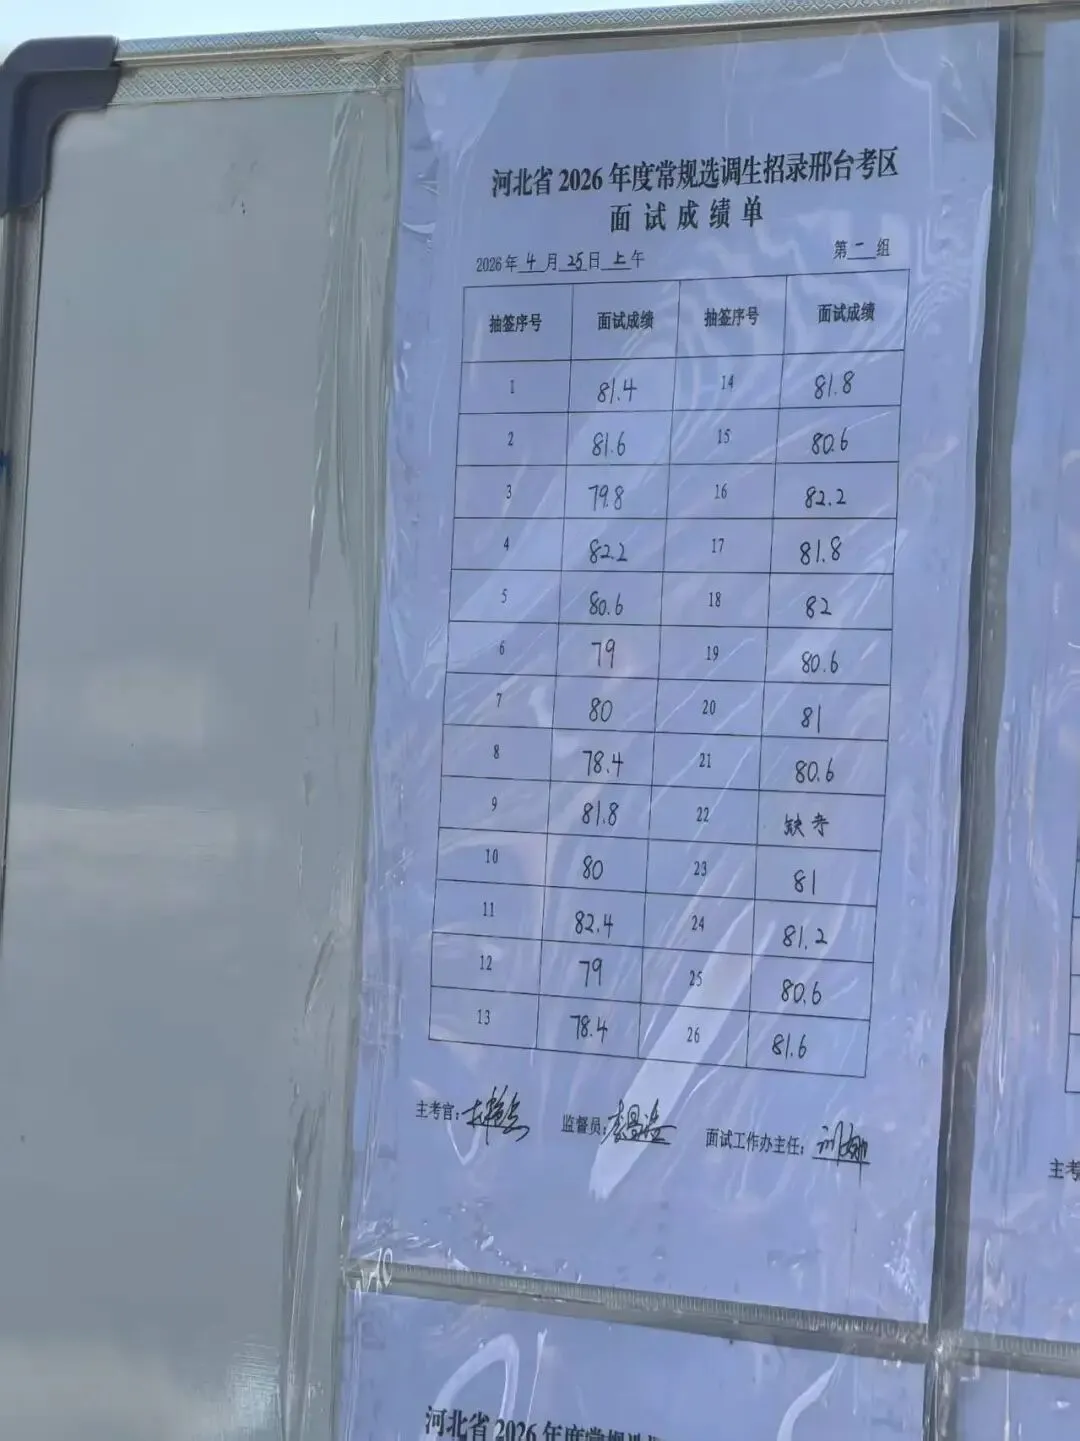 河北省 2026 年度常规选调生招录邢台考区
面试成绩单
2026年 4 月 25 日 上 午 第 二 组
抽签序号 面试成绩 抽签序号 面试成绩
1 81.4 14 81.8
2 81.6 15 80.6
3 79.8 16 82.2
4 82.2 17 81.8
5 80.6 18 82
6 79 19 80.6
7 80 20 81
8 78.4 21 80.6
9 81.8 22 缺考
10 80 23 81
11 82.4 24 81.2
12 79 25 80.6
13 78.4 26 81.6
主考官： 监督员： 面试工作办主任：
主考
河北省 2026 年度常规选调